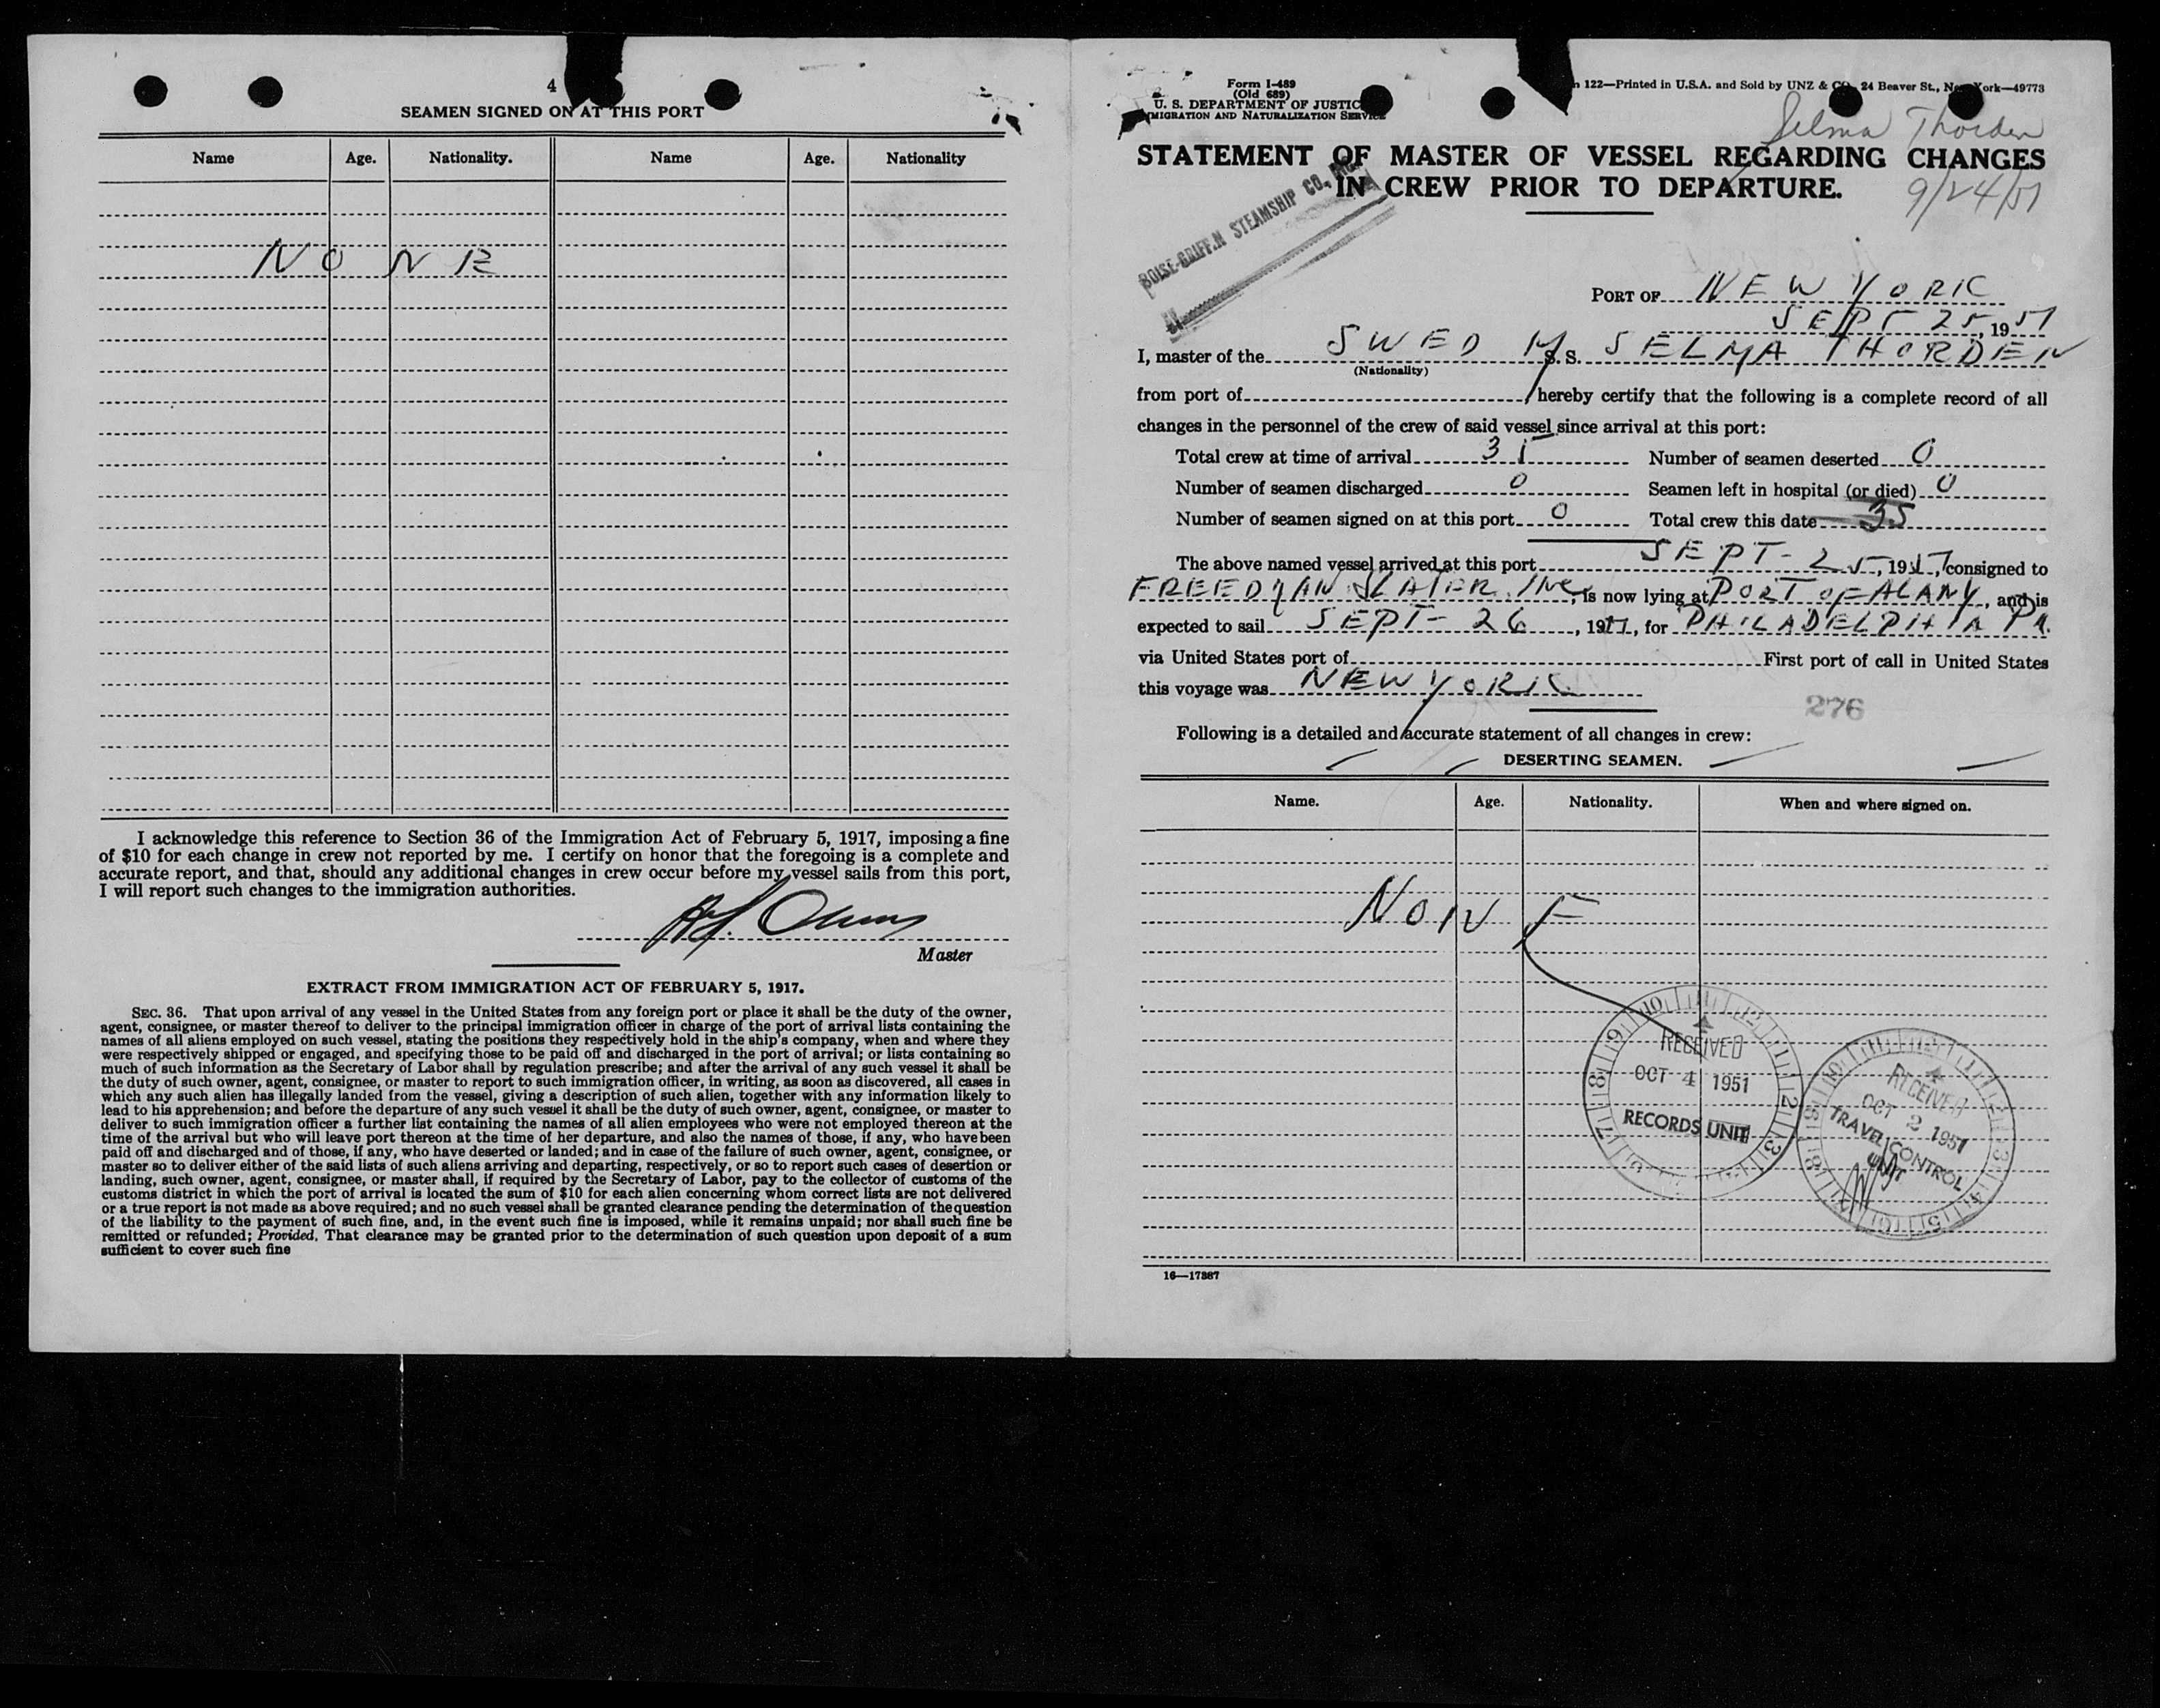 4
SEAMEN SIGNED ON AT THIS PORT
Name Age. Nationality. Name Age. Nationality
NONE
I acknowledge this reference to Section 36 of the Immigration Act of February 5, 1917, imposing a fine
of $10 for each change in crew not reported by me. I certify on honor that the foregoing is a complete and
accurate report, and that, should any additional changes in crew occur before my vessel sails from this port,
I will report such changes to the immigration authorities.
Master
EXTRACT FROM IMMIGRATION ACT OF FEBRUARY 5, 1917.
SEC. 36. That upon arrival of any vessel in the United States from any foreign port or place it shall be the duty of the owner,
agent, consignee, or master thereof to deliver to the principal immigration officer in charge of the port of arrival lists containing the
names of all aliens employed on such vessel, stating the positions they respectively hold in the ship's company, when and where they
were respectively shipped or engaged, and specifying those to be paid off and discharged in the port of arrival; or lists containing so
much of such information as the Secretary of Labor shall by regulation prescribe; and after the arrival of any such vessel it shall be
the duty of such owner, agent, consignee, or master to report to such immigration officer, in writing, as soon as discovered, all cases in
which any such alien has illegally landed from the vessel, giving a description of such alien, together with any information likely to
lead to his apprehension; and before the departure of any such vessel it shall be the duty of such owner, agent, consignee, or master to
deliver to such immigration officer a further list containing the names of all alien employees who were not employed thereon at the
time of the arrival but who will leave port thereon at the time of her departure, and also the names of those, if any, who have been
paid off and discharged and of those, if any, who have deserted or landed; and in case of the failure of such owner, agent, consignee, or
master so to deliver either of the said lists of such aliens arriving and departing, respectively, or so to report such cases of desertion or
landing, such owner, agent, consignee, or master shall, if required by the Secretary of Labor, pay to the collector of customs of the
customs district in which the port of arrival is located the sum of $10 for each alien concerning whom correct lists are not delivered
or a true report is not made as above required; and no such vessel shall be granted clearance pending the determination of the question
of the liability to the payment of such fine, and, in the event such fine is imposed, while it remains unpaid; nor shall such fine be
remitted or refunded; Provided, That clearance may be granted prior to the determination of such question upon deposit of a sum
sufficient to cover such fine
Form I-489
(Old 689)
U. S. DEPARTMENT OF JUSTIC
MIGRATION AND NATURALIZATION SERVICE
122—Printed in U.S.A. and Sold by UNZ & CO. 24 Beaver St., New York—49773
Selma Thorden
STATEMENT OF MASTER OF VESSEL REGARDING CHANGES
IN CREW PRIOR TO DEPARTURE.
9/24/51
BOISE-GRIFFIN STEAMSHIP CO., INC.
PORT OF NEW YORK
SEPT 25, 1951
I, master of the SWED M.S. SELMA THORDEN
(Nationality)
from port of , hereby certify that the following is a complete record of all
changes in the personnel of the crew of said vessel since arrival at this port:
Total crew at time of arrival 35 Number of seamen deserted 0
Number of seamen discharged 0 Seamen left in hospital (or died) 0
Number of seamen signed on at this port 0 Total crew this date 35
The above named vessel arrived at this port SEPT-25, 1951, consigned to
FREEDMAN SLATER INC, is now lying at PORT OF ALANY, and is
expected to sail SEPT-26, 1951, for PHILADELPHIA PA.
via United States port of First port of call in United States
this voyage was NEW YORK
276
Following is a detailed and accurate statement of all changes in crew:
DESERTING SEAMEN.
Name. Age. Nationality. When and where signed on.
NONE
RECEIVED
OCT 4 1951
RECORDS UNIT
RECEIVED
OCT 2 1951
TRAVEL CONTROL
UNIT
16—17387